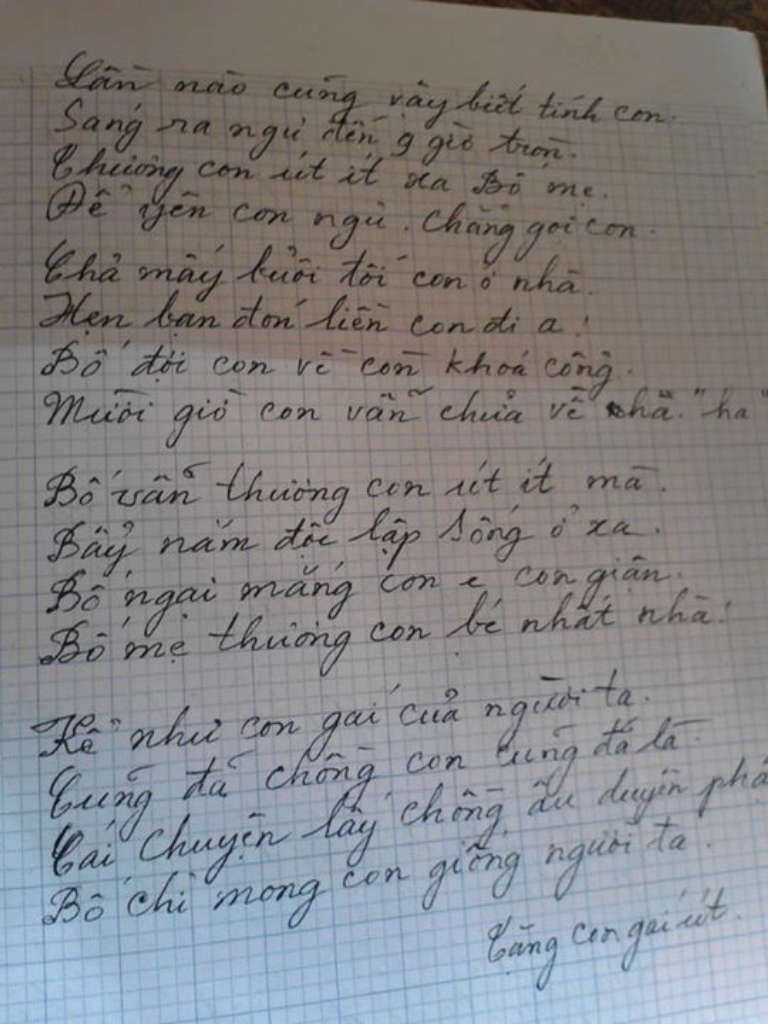 Lần nào cũng vậy biết tính con.
Sáng ra ngủ đến 9 giờ tròn.
Thương con út ít xa Bố mẹ.
Để yên con ngủ. Chẳng gọi con.
Chả mấy buổi tối con ở nhà.
Hẹn bạn đón liền con đi a!
Bố đợi con về còn khoá cổng.
Mười giờ con vẫn chưa về nhà. "ha"
Bố vẫn thương con út ít mà.
Bẩy năm độc lập sống ở xa.
Bố ngại mắng con e con giận.
Bố mẹ thương con bé nhất nhà!
Kể như con gái của người ta.
Cũng đã chồng con cũng đã là
Cái chuyện lấy chồng âu duyên phậ
Bố chỉ mong con giống người ta.
Tặng con gái út.